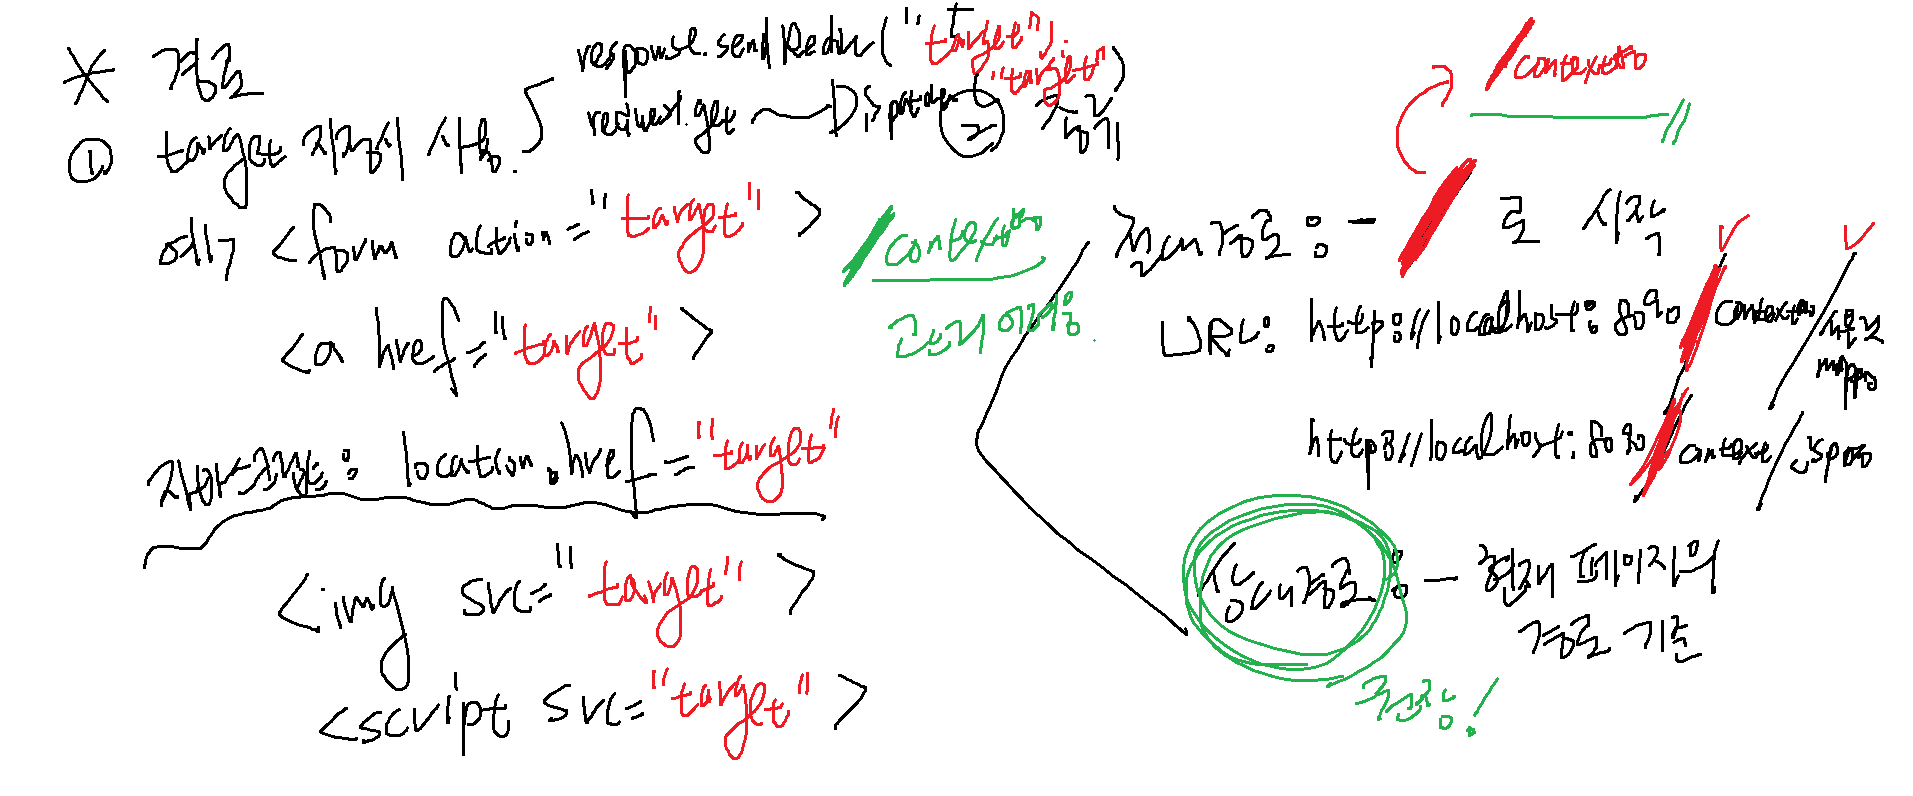 * 경로
① target 지정시 사용.
response.sendRedir("target").
request.get ~ Dispatcher("target")
예) <form action="target">
<a href="target">
자바스크립트: location.href="target"
<img src="target">
<script src="target">
/context명
관리 어려움.
/context명
절대경로: - / 로 시작
URL: http://localhost:8090/context명/서블릿
mapping
http://localhost:8090/context/jsp명
상대경로: - 현재 페이지의
경로 기준
권장!